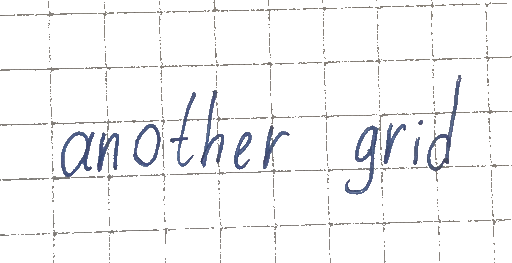 another grid